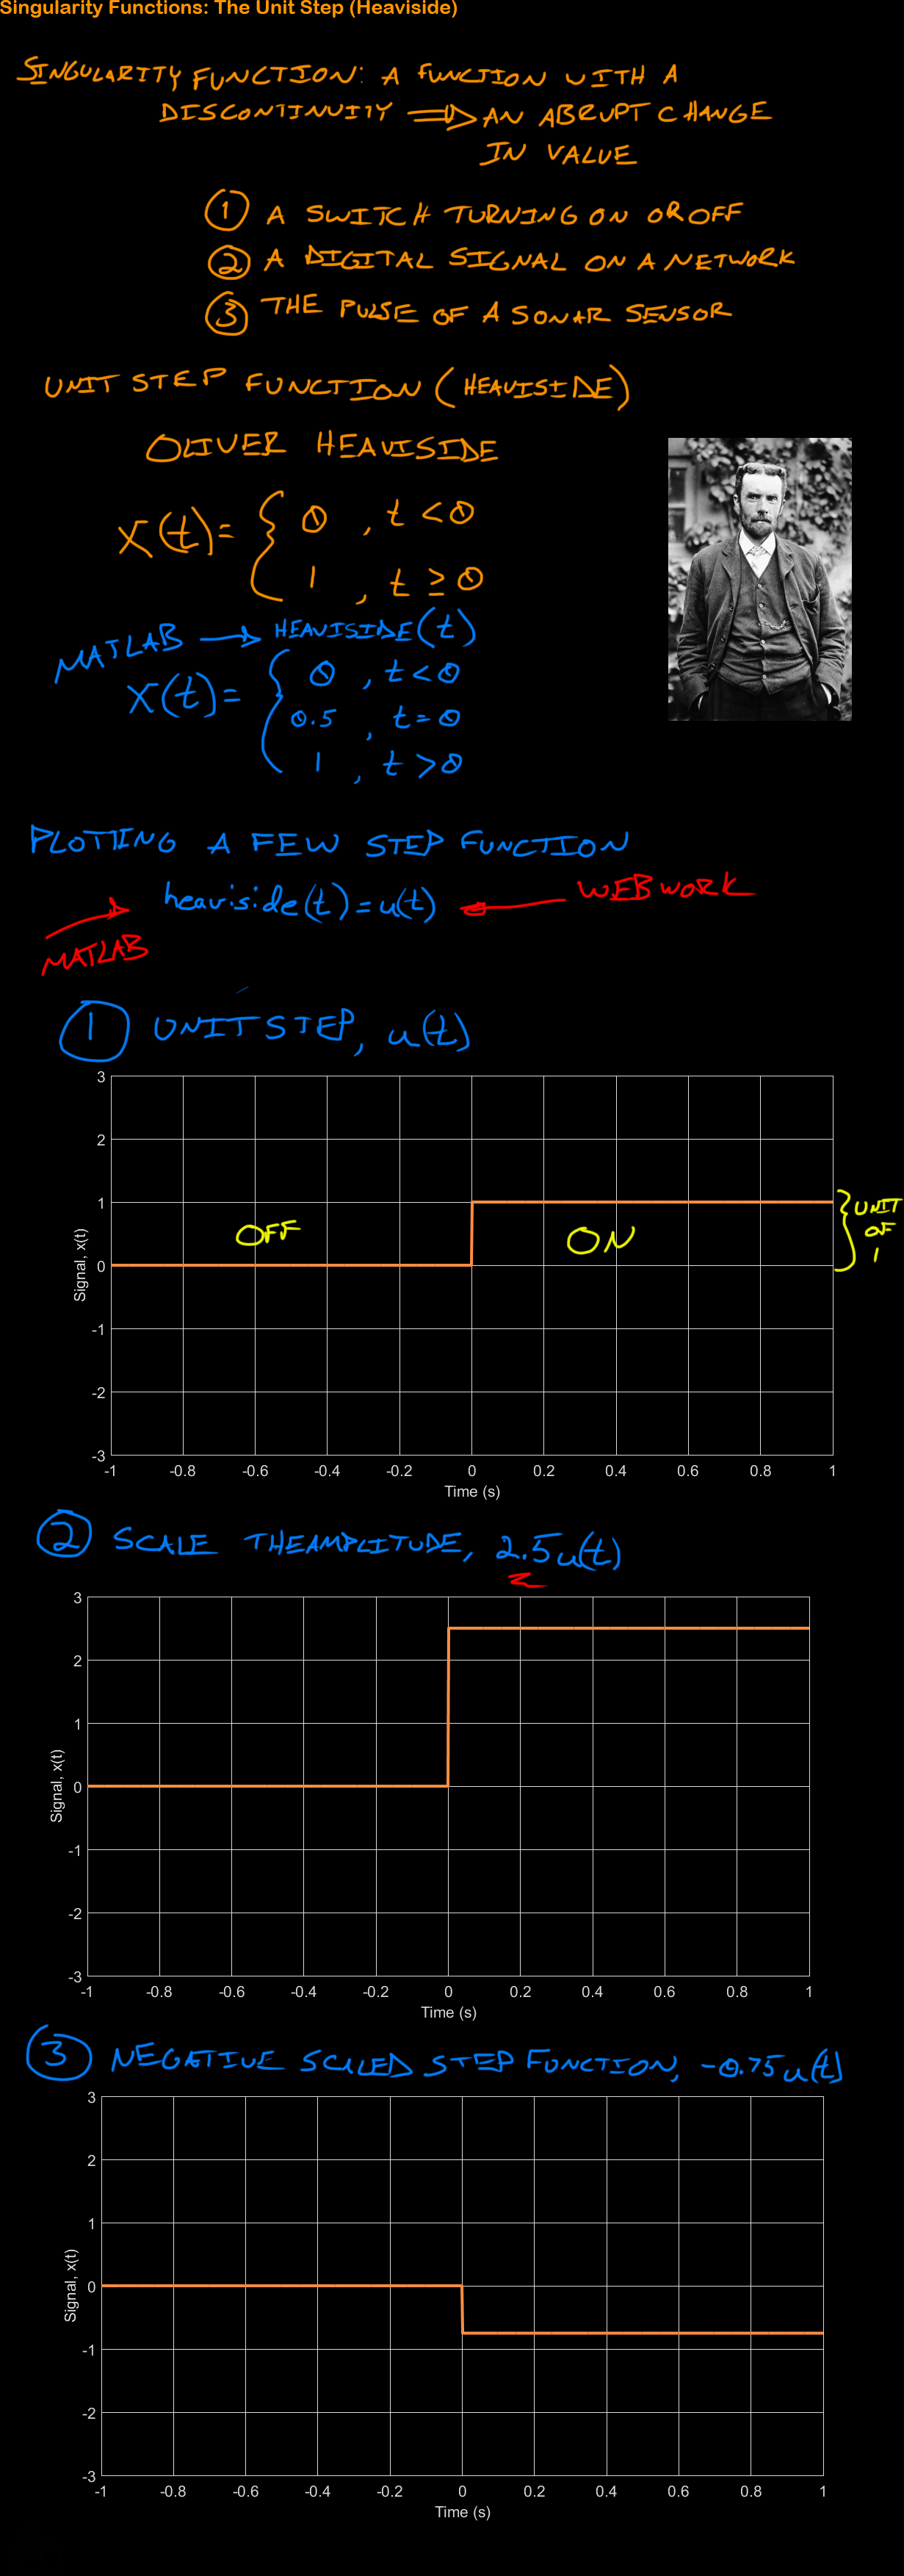 Singularity Functions: The Unit Step (Heaviside)
SINGULARITY FUNCTION: A FUNCTION WITH A
DISCONTINUITY ⟹ AN ABRUPT CHANGE
IN VALUE
① A SWITCH TURNING ON OR OFF
② A DIGITAL SIGNAL ON A NETWORK
③ THE PULSE OF A SONAR SENSOR
UNIT STEP FUNCTION (HEAVISIDE)
OLIVER HEAVISIDE
X(t)= { 0 , t < 0
1 , t ≥ 0
MATLAB → HEAVISIDE(t)
X(t)= { 0 , t < 0
0.5 , t = 0
1 , t > 0
PLOTTING A FEW STEP FUNCTION
heaviside(t) = u(t) ← WEBWORK
MATLAB →
① UNIT STEP, u(t)
3
2
1
0
-1
-2
-3
Signal, x(t)
OFF
ON
} UNIT
OF
1
-1 -0.8 -0.6 -0.4 -0.2 0 0.2 0.4 0.6 0.8 1
Time (s)
② SCALE THE AMPLITUDE, 2.5u(t)
3
2
1
0
-1
-2
-3
Signal, x(t)
-1 -0.8 -0.6 -0.4 -0.2 0 0.2 0.4 0.6 0.8 1
Time (s)
③ NEGATIVE SCALED STEP FUNCTION, -0.75u(t)
3
2
1
0
-1
-2
-3
Signal, x(t)
-1 -0.8 -0.6 -0.4 -0.2 0 0.2 0.4 0.6 0.8 1
Time (s)